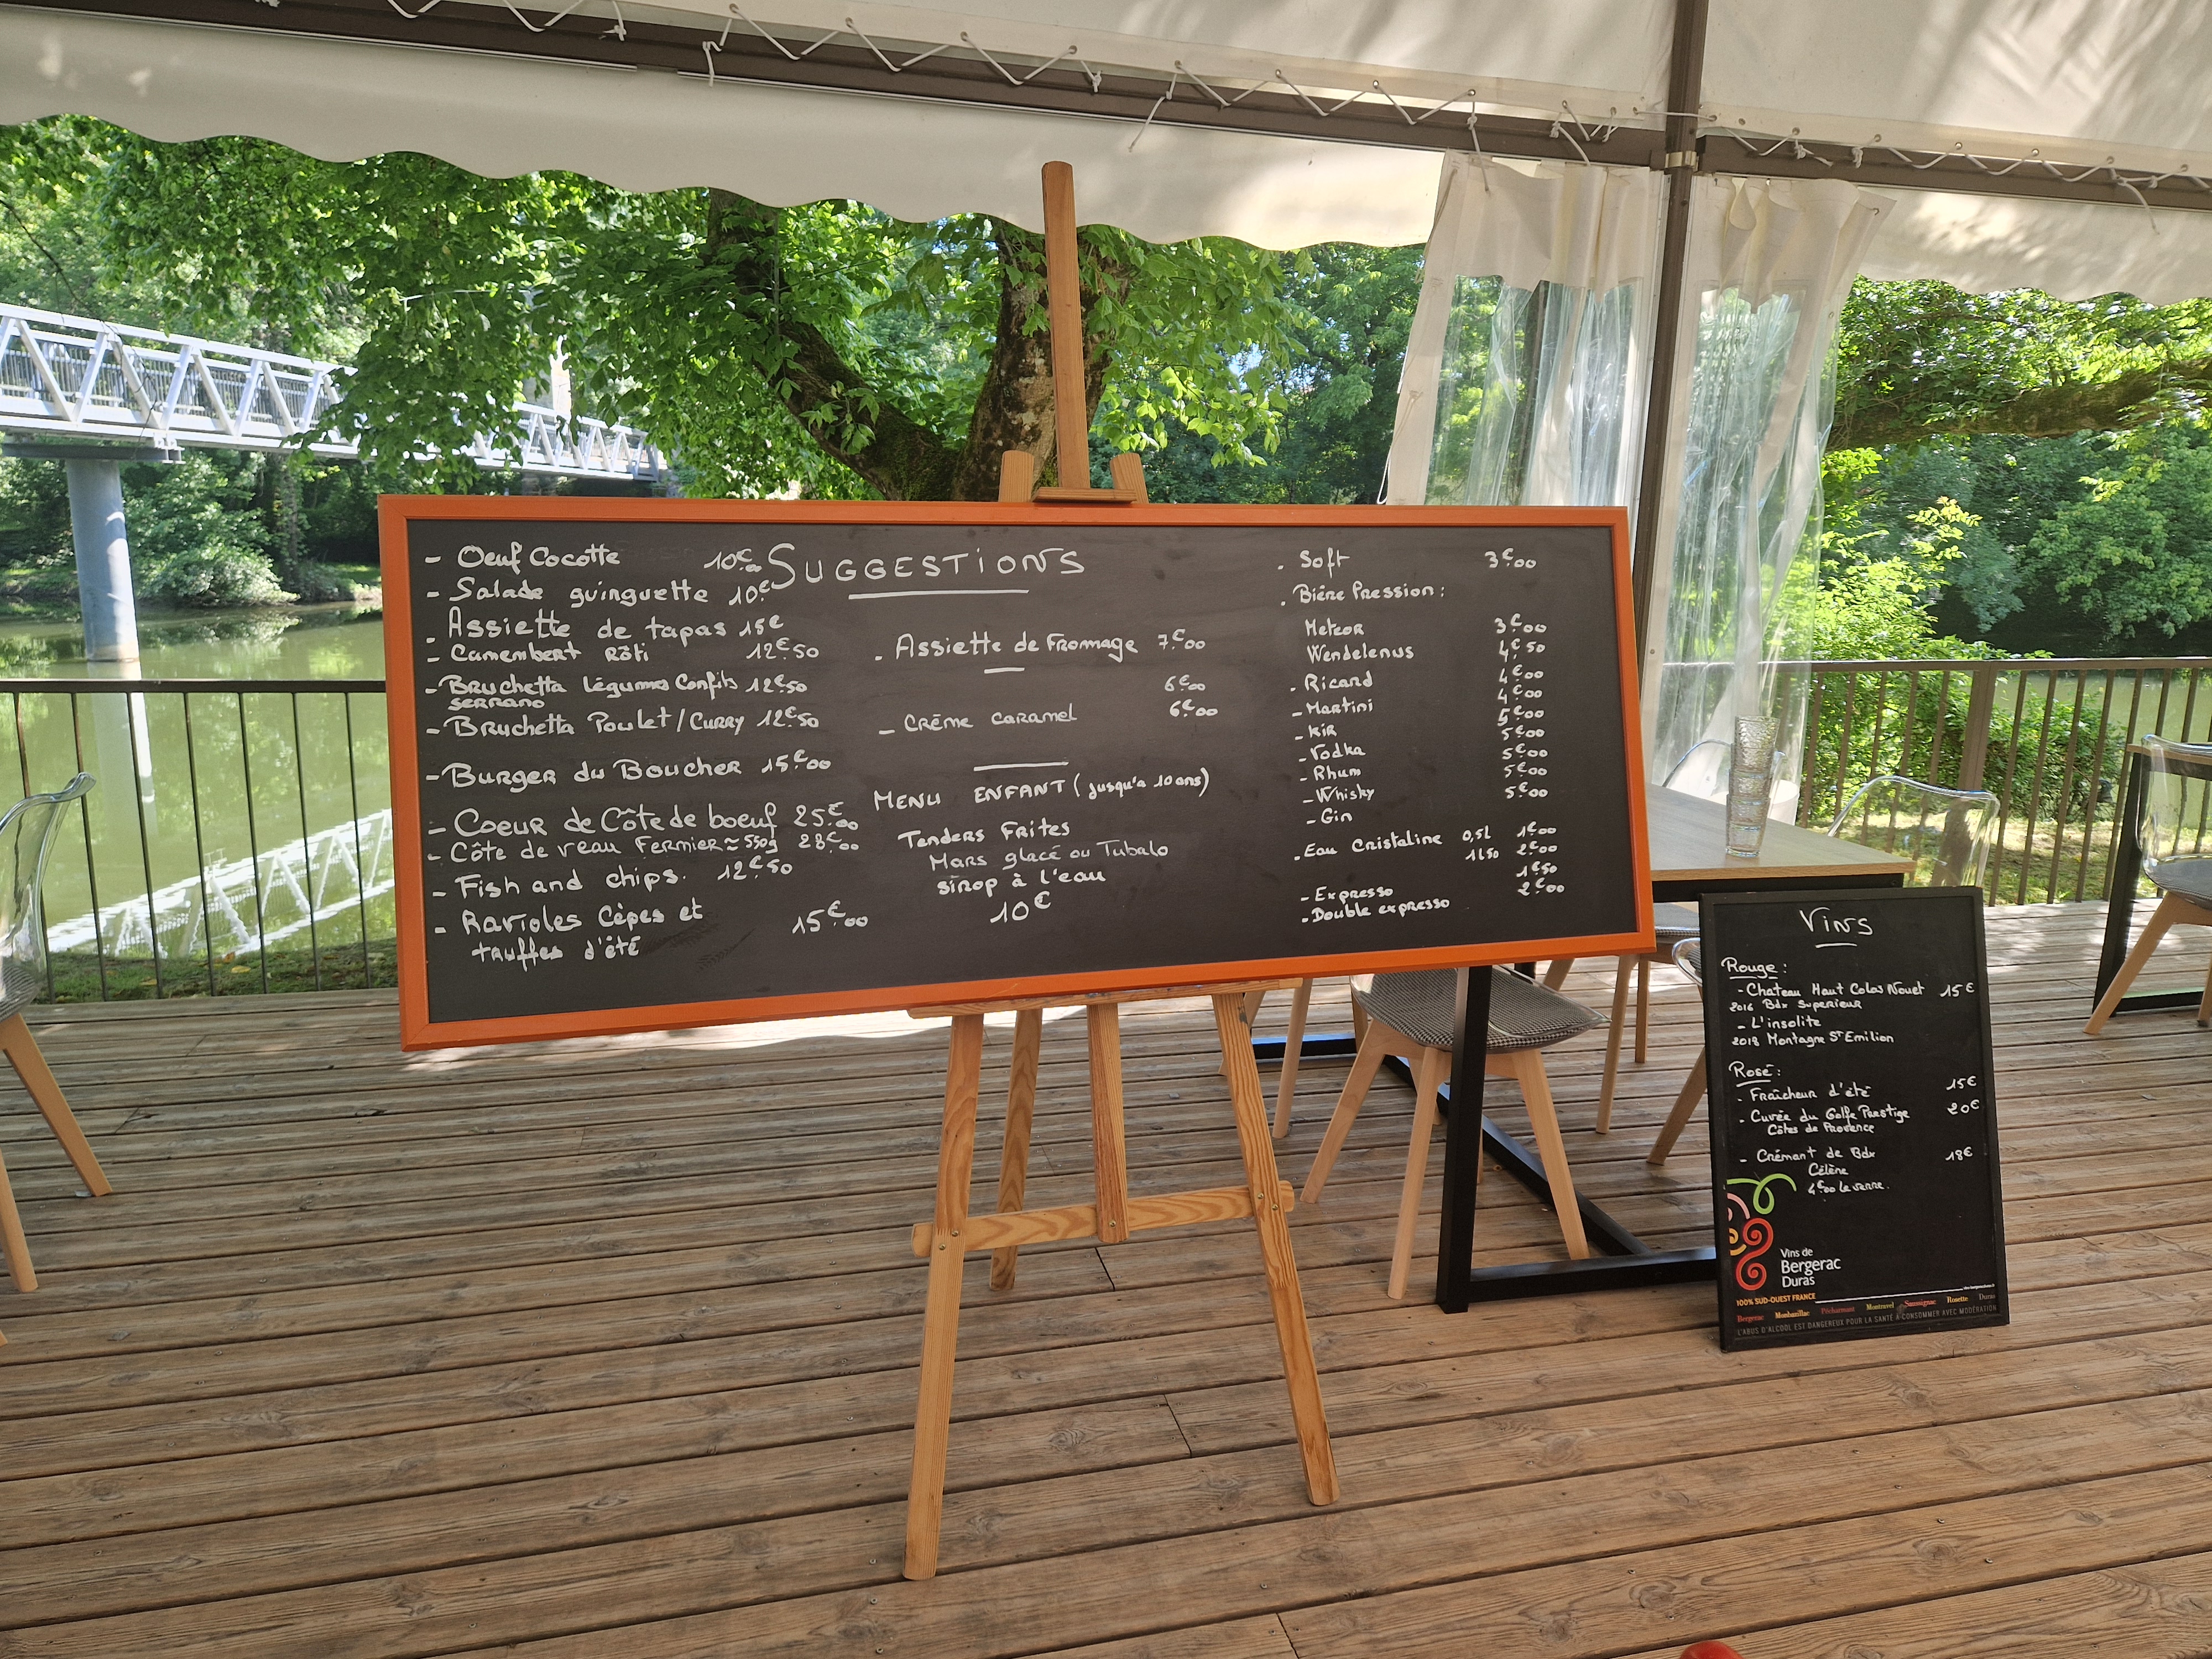 - Oeuf Cocotte 10€00
- Salade guinguette 10€
- Assiette de tapas 15€
- Camembert Rôti 12€50
- Bruchetta Légumes Confits 12€50
serrano
- Bruchetta Poulet/Curry 12€50
- Burger du Boucher 15€00
- Coeur de Côte de boeuf 25€00
- Côte de veau Fermier ≈ 550g 28€00
- Fish and chips. 12€50
- Ravioles Cèpes et 15€00
truffes d'été
SUGGESTIONS
. Assiette de Fromage 7€00
6€00
- Crème caramel 6€00
MENU ENFANT (jusqu'a 10 ans)
Tenders Frites
Mars glacé ou Tubalo
sirop à l'eau
10€
. Soft 3€00
. Bière Pression :
Meteor 3€00
Wendelenus 4€50
. Ricard 4€00
- Martini 4€00
- Kir 5€00
- Vodka 5€00
- Rhum 5€00
- Whisky 5€00
- Gin 5€00
. Eau Cristaline 0,5l 1€00
1l50 2€00
- Expresso 1€50
. Double expresso 2€00
Vins
Rouge :
- Chateau Haut Colas Nouet 15€
2016 Bdx Superieur
- L'insolite
2018 Montagne St Emilion
Rosé :
- Fraîcheur d'été 15€
- Cuvée du Golfe Prestige 20€
Côtes de Provence
- Crémant de Bdx 18€
Célène
4€00 le verre.
Vins de
Bergerac
Duras
100% SUD-OUEST FRANCE
Bergerac Monbazillac Pécharmant Montravel Saussignac Rosette Duras
L'ABUS D'ALCOOL EST DANGEREUX POUR LA SANTÉ À CONSOMMER AVEC MODÉRATION